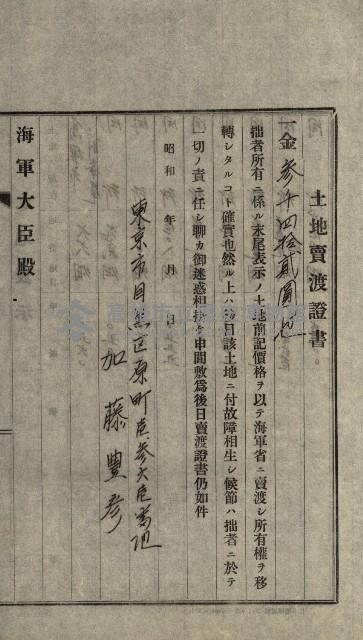 土地賣渡證書
一金參千四拾貳圓也
拙者所有ニ係ル末尾表示ノ土地前記價格ヲ以テ海軍省ニ賣渡シ所有權ヲ移
轉シタルコト確實也然ル上ハ後日該土地ニ付故障相生シ候節ハ拙者ニ於テ
一切ノ責ニ任シ聊カ御迷惑相掛ケ申間敷爲後日賣渡證書仍如件
昭和 年 月 日
東京市目黑區原町
加藤豐彥
海軍大臣殿